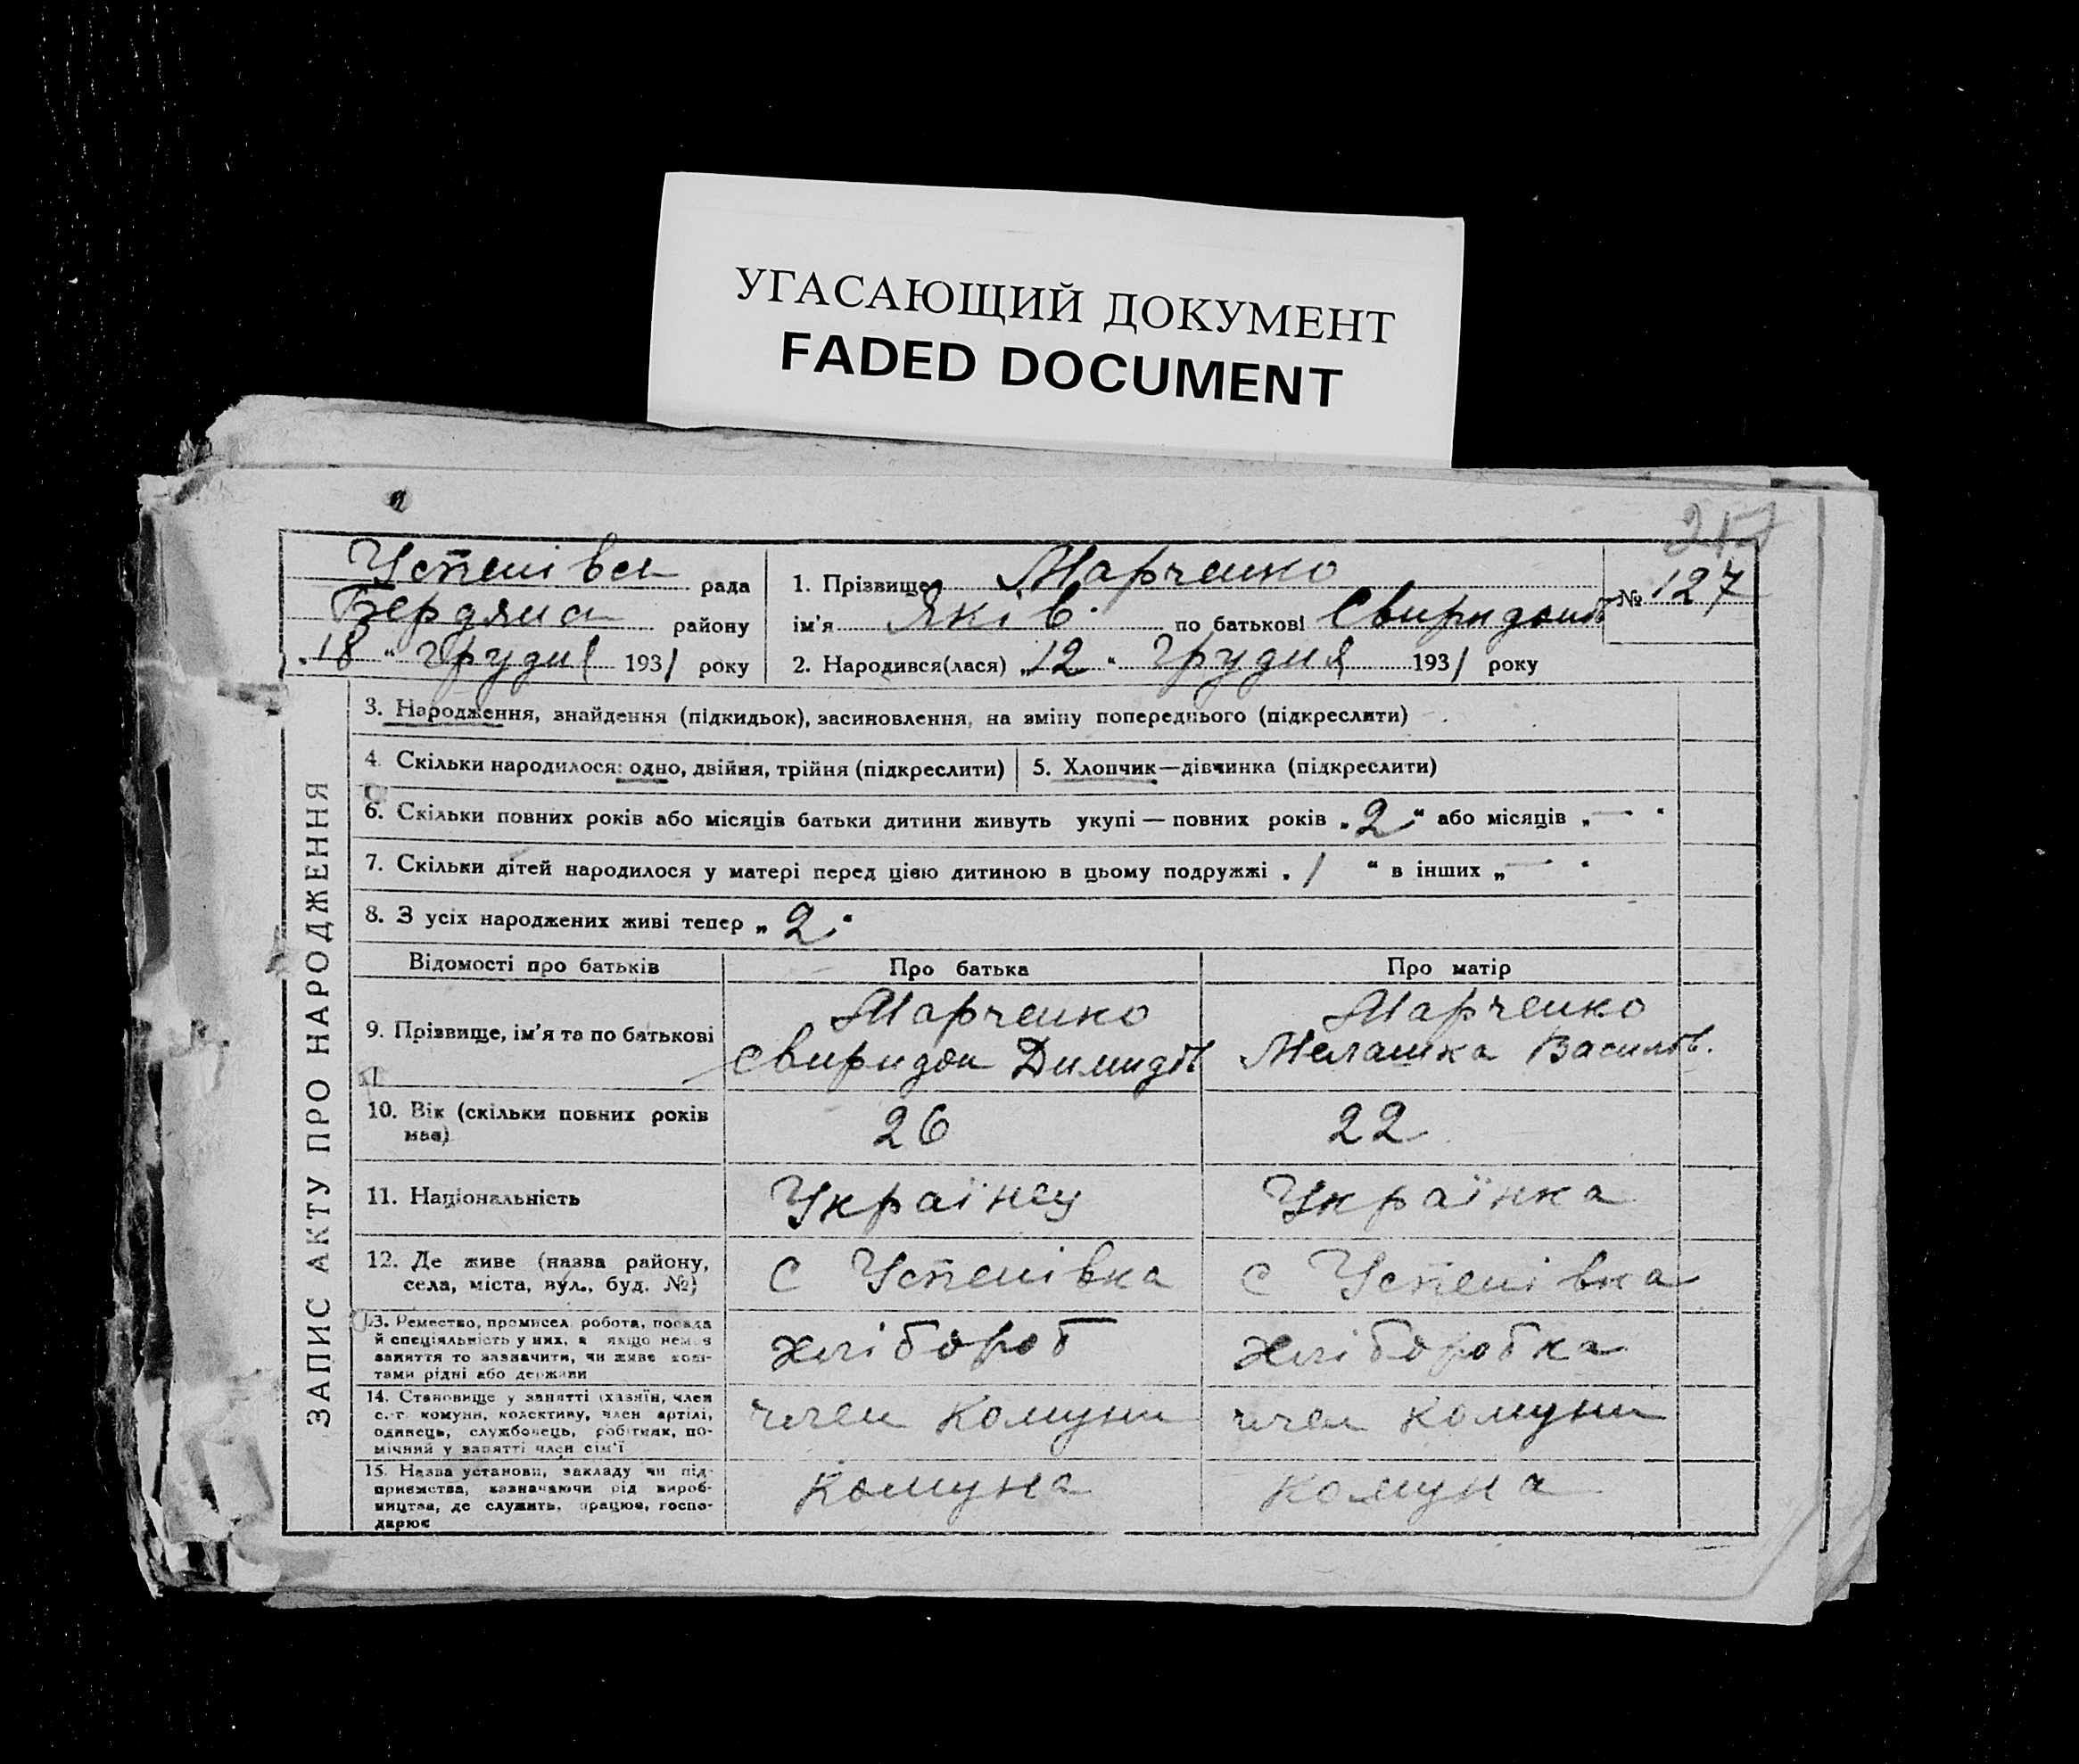 УГАСАЮЩИЙ ДОКУМЕНТ
FADED DOCUMENT
217
Успенівск рада
Бердянск району
„18“ Грудня 1931 року
1. Прізвище Марченко
ім'я Яків по батькові Свиридонов
№ 127
2. Народився(лася) „12“ Грудня 1931 року
ЗАПИС АКТУ ПРО НАРОДЖЕННЯ
3. Народження, знайдення (підкидьок), засиновлення, на зміну попереднього (підкреслити)
4. Скільки народилося: одно, двійня, трійня (підкреслити)
5. Хлопчик—дівчинка (підкреслити)
6. Скільки повних років або місяців батьки дитини живуть укупі — повних років „2“ або місяців „—“
7. Скільки дітей народилося у матері перед цією дитиною в цьому подружжі „1“ в інших „—“
8. З усіх народжених живі тепер „2“
Відомості про батьків Про батька Про матір
9. Прізвище, ім'я та по батькові
Марченко
Свиридон Димидов
Марченко
Мелашка Василів.
10. Вік (скільки повних років
має)
26 22
11. Національність Українец Українка
12. Де живе (назва району,
села, міста, вул., буд. №)
с Успенівка с Успенівка
13. Ремество, промисел, робота, посада
й спеціяльність у них, а якщо немає
заняття то зазначити, чи живе кош-
тами рідні або держави
хлібороб хліборобка
14. Становище у занятті (хазяїн, член
с.-г. комуни, колективу, член артілі,
одинець, службовець, робітник, по-
мічний у занятті член сім'ї
член комуни член комуни
15. Назва установи, закладу чи під-
приємства, зазначаючи рід вироб-
ництва, де служить, працює, госпо-
дарює
комуна комуна